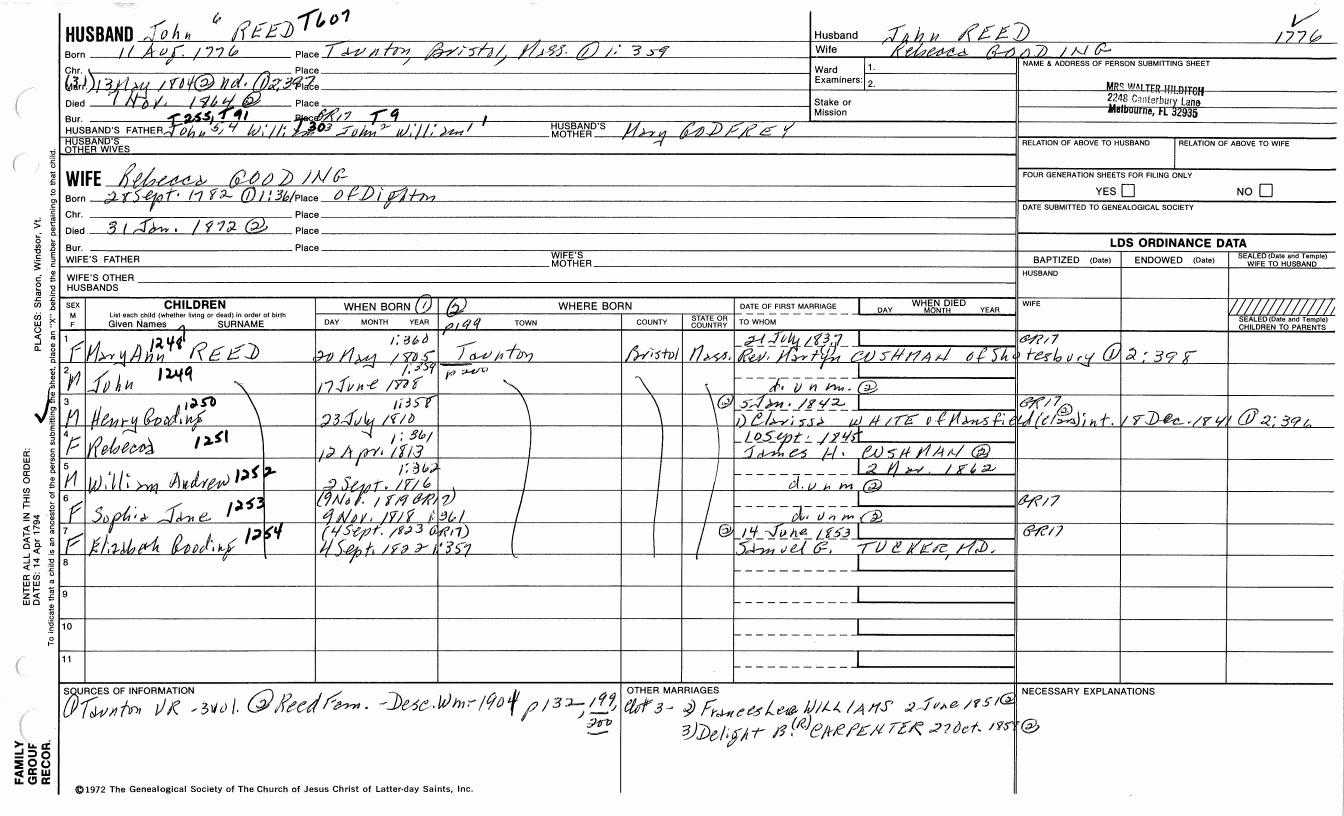 HUSBAND John 6 REED T607
Born 11 Aug. 1776 Place Taunton, Bristol, Mass. ① 1:359
Chr. Place
Marr. (31) 13 May 1804 ② nd. ① 2:397 Place
Died 1 Nov. 1864 ② Place
T255, T91 GR17 T9
Bur. Place
HUSBAND'S FATHER John 5,4 William 3 T303 John 2 William 1 HUSBAND'S MOTHER Mary GODFREY
HUSBAND'S OTHER WIVES
Husband John REED 1776
Wife Rebecca GOODING
Ward 1.
Examiners: 2.
Stake or Mission
NAME & ADDRESS OF PERSON SUBMITTING SHEET
MRS WALTER HILDITCH
2248 Canterbury Lane
Melbourne, FL 32935
RELATION OF ABOVE TO HUSBAND RELATION OF ABOVE TO WIFE
FOUR GENERATION SHEETS FOR FILING ONLY
YES NO
DATE SUBMITTED TO GENEALOGICAL SOCIETY
WIFE Rebecca GOODING
Born 28 Sept. 1782 ① 1:361 Place of Dighton
Chr. Place
Died 31 Jan. 1872 ② Place
Bur. Place
WIFE'S FATHER WIFE'S MOTHER
WIFE'S OTHER HUSBANDS
LDS ORDINANCE DATA
BAPTIZED (Date) ENDOWED (Date) SEALED (Date and Temple) WIFE TO HUSBAND
HUSBAND
WIFE
SEALED (Date and Temple) CHILDREN TO PARENTS
SEX M F
CHILDREN
List each child (whether living or dead) in order of birth
Given Names SURNAME
WHEN BORN ① ②
DAY MONTH YEAR p199
WHERE BORN
TOWN COUNTY STATE OR COUNTRY
DATE OF FIRST MARRIAGE
TO WHOM
WHEN DIED
DAY MONTH YEAR
1 1248 7 1:360 21 July 1837 GR17
F Mary Ann REED 20 May 1805 Taunton Bristol Mass. Rev. Martyn CUSHMAN of Shutesbury ① 2:398
2 1249 1:359 p200
M John 17 June 1808 d. unm. ②
3 1250 1:358 ② 5 Jan. 1842 GR17
M Henry Gooding 23 July 1810 1) Clarissa WHITE of Mansfield (Clara) ② int. 18 Dec. 1841 ① 2:396
4 1251 1:361 10 Sept. 1845
F Rebecca 12 Apr. 1813 James H. CUSHMAN ②
5 1252 1:362 2 Mar. 1862
M William Andrew 2 Sept. 1816 d. unm ②
6 1253 (9 Nov. 1819 GR17) GR17
F Sophia Jane 9 Nov. 1818 1:361 d. unm ②
7 1254 (4 Sept. 1823 GR17) ② 14 June 1853 GR17
F Elizabeth Gooding 4 Sept. 1822 1:357 Samuel G. TUCKER, M.D.
8
9
10
11
SOURCES OF INFORMATION
① Taunton VR - 3 vol. ② Reed Fam. - Desc. Wm - 1904 p 132, 199, 200
OTHER MARRIAGES
Ch # 3 - 2) Frances Lee WILLIAMS 2 June 1851 ②
3) Delight B. (R) CARPENTER 27 Oct. 1858 ②
NECESSARY EXPLANATIONS
©1972 The Genealogical Society of The Church of Jesus Christ of Latter-day Saints, Inc.
FAMILY GROUP RECOR.
ENTER ALL DATA IN THIS ORDER:
DATES: 14 Apr 1794
PLACES: Sharon, Windsor, Vt.
To indicate that a child is an ancestor of the person submitting the sheet, place an "X" behind the number pertaining to that child.